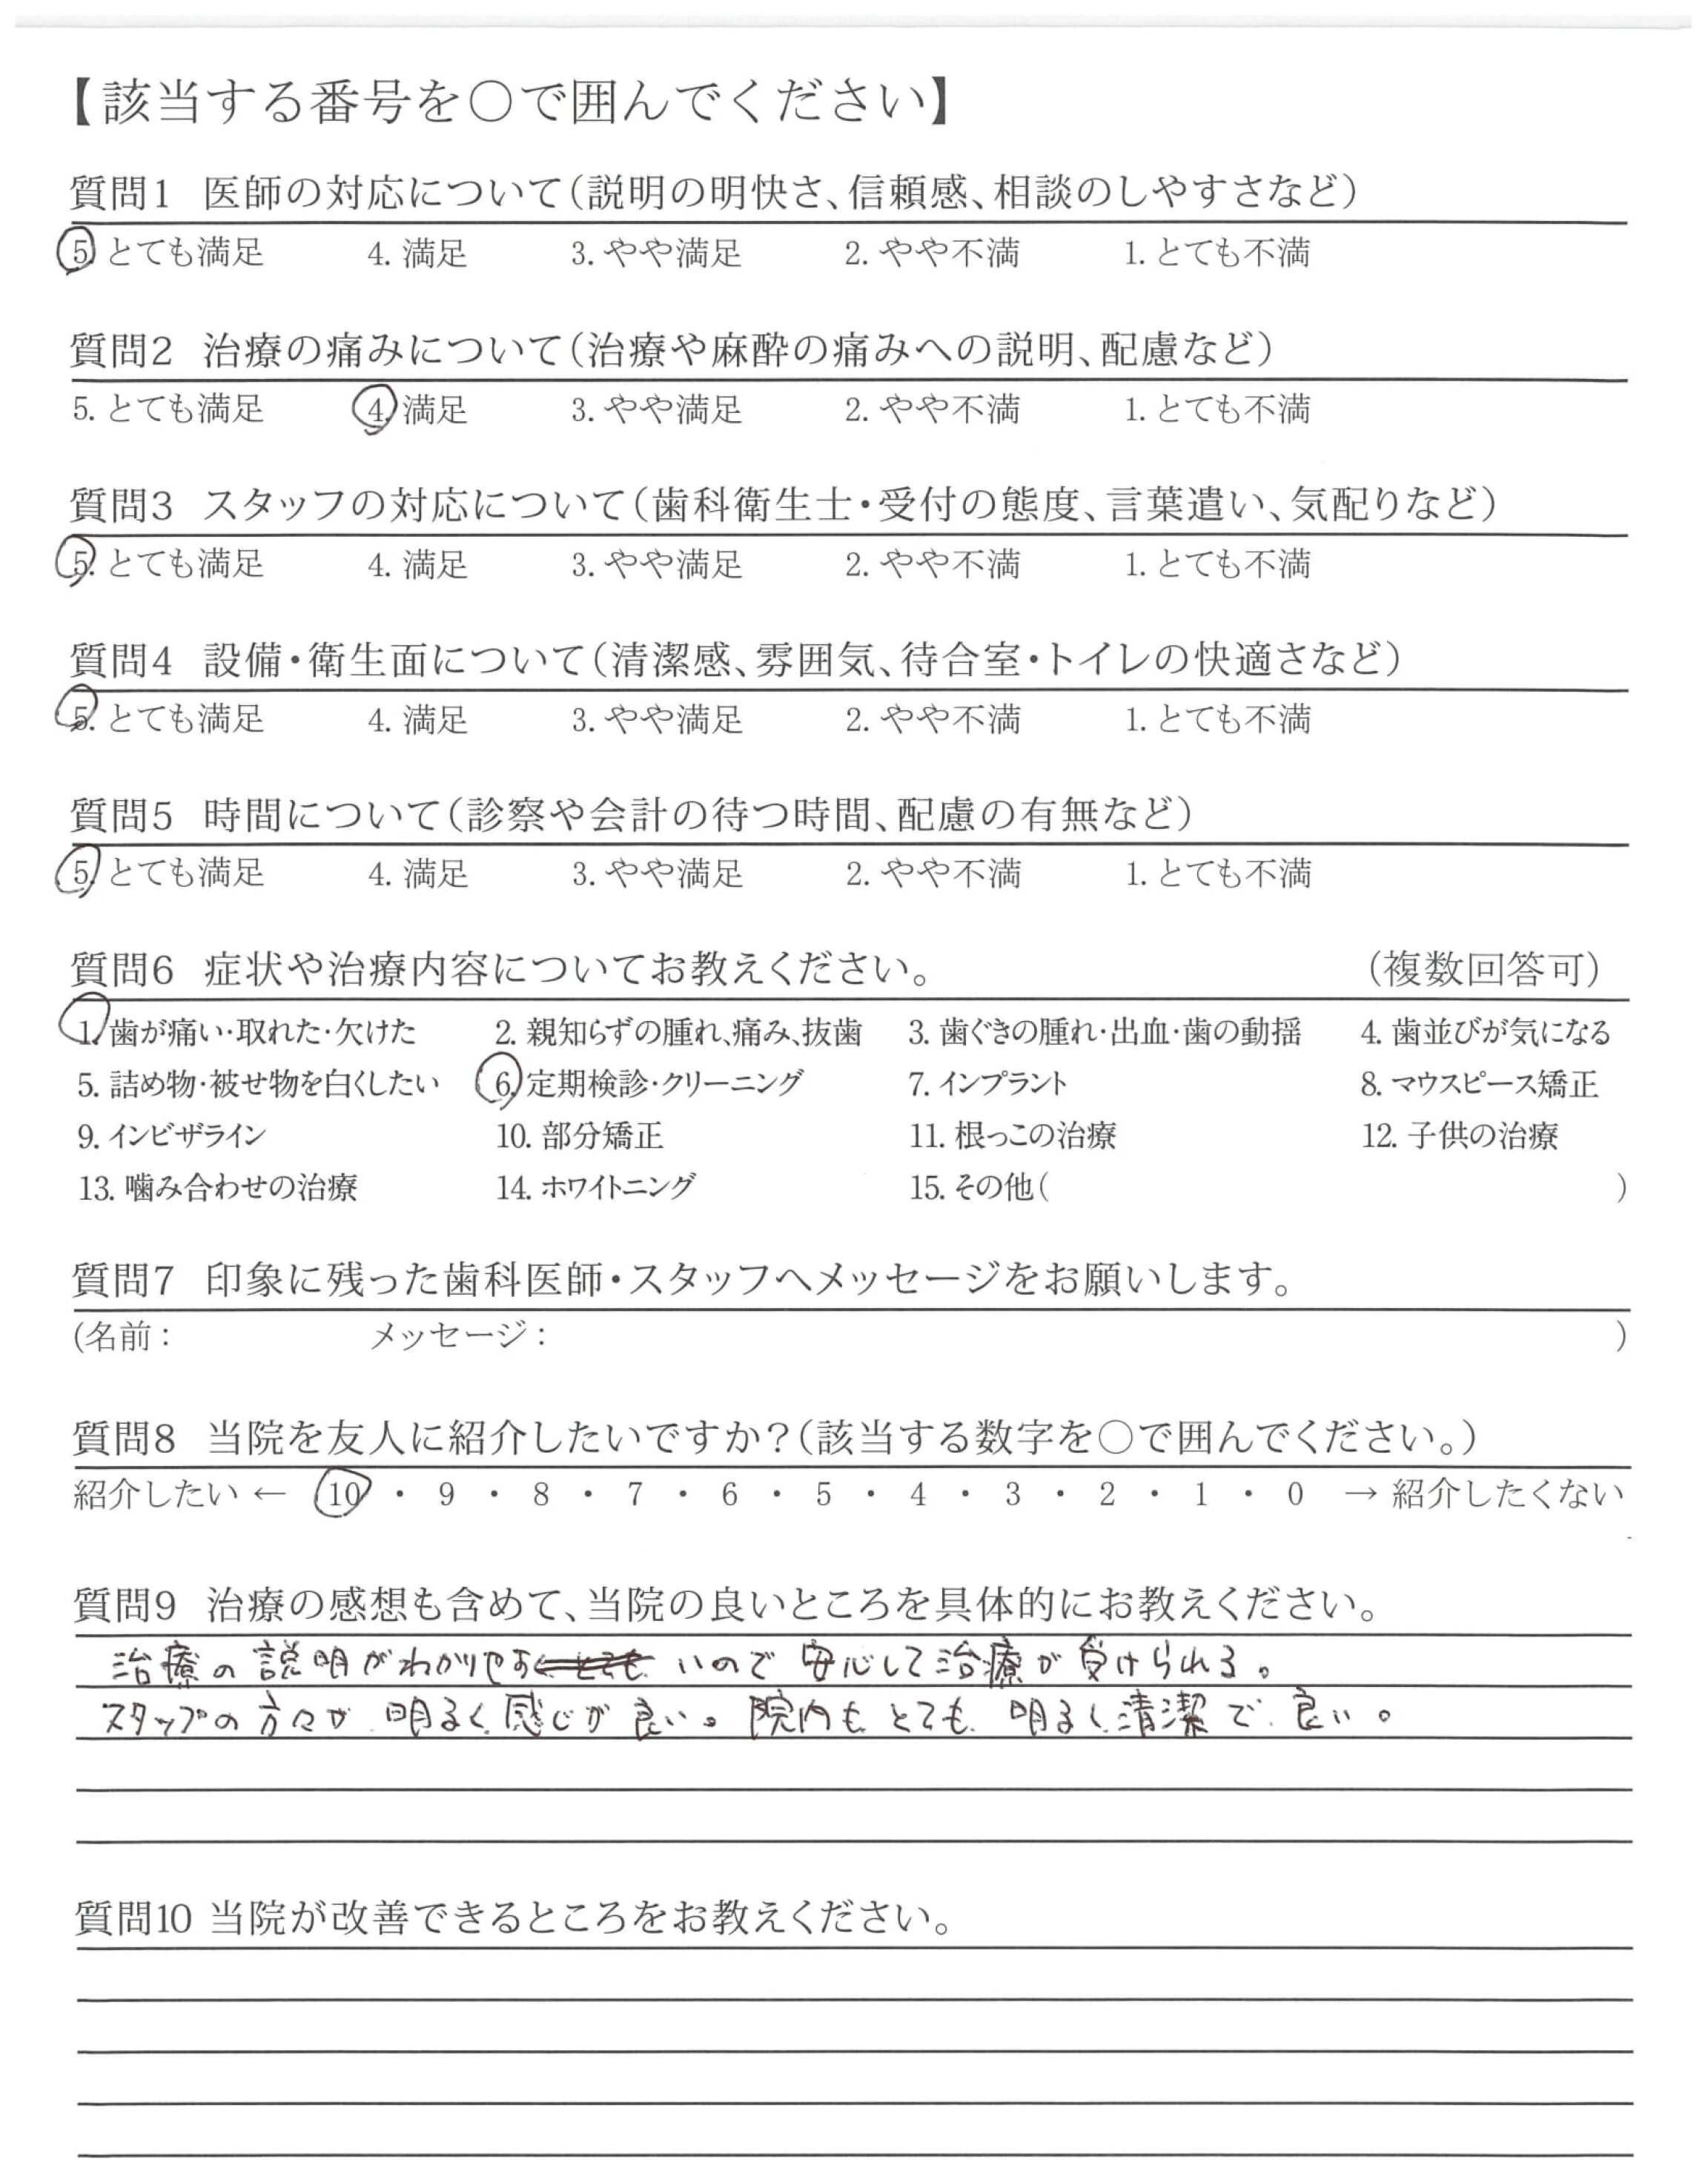 【該当する番号を○で囲んでください】
質問1 医師の対応について(説明の明快さ、信頼感、相談のしやすさなど)
5. とても満足 4. 満足 3. やや満足 2. やや不満 1. とても不満
質問2 治療の痛みについて(治療や麻酔の痛みへの説明、配慮など)
5. とても満足 4. 満足 3. やや満足 2. やや不満 1. とても不満
質問3 スタッフの対応について(歯科衛生士・受付の態度、言葉遣い、気配りなど)
5. とても満足 4. 満足 3. やや満足 2. やや不満 1. とても不満
質問4 設備・衛生面について(清潔感、雰囲気、待合室・トイレの快適さなど)
5. とても満足 4. 満足 3. やや満足 2. やや不満 1. とても不満
質問5 時間について(診察や会計の待つ時間、配慮の有無など)
5. とても満足 4. 満足 3. やや満足 2. やや不満 1. とても不満
質問6 症状や治療内容についてお教えください。 (複数回答可)
1. 歯が痛い・取れた・欠けた 2. 親知らずの腫れ、痛み、抜歯 3. 歯ぐきの腫れ・出血・歯の動揺 4. 歯並びが気になる
5. 詰め物・被せ物を白くしたい 6. 定期検診・クリーニング 7. インプラント 8. マウスピース矯正
9. インビザライン 10. 部分矯正 11. 根っこの治療 12. 子供の治療
13. 噛み合わせの治療 14. ホワイトニング 15. その他( )
質問7 印象に残った歯科医師・スタッフへメッセージをお願いします。
(名前: メッセージ: )
質問8 当院を友人に紹介したいですか?(該当する数字を○で囲んでください。)
紹介したい ← 10 ・ 9 ・ 8 ・ 7 ・ 6 ・ 5 ・ 4 ・ 3 ・ 2 ・ 1 ・ 0 → 紹介したくない
質問9 治療の感想も含めて、当院の良いところを具体的にお教えください。
治療の説明がわかりやすいので安心して治療が受けられる。
スタップの方々が明るく感じが良い。院内もとても明るく清潔で良い。
質問10 当院が改善できるところをお教えください。